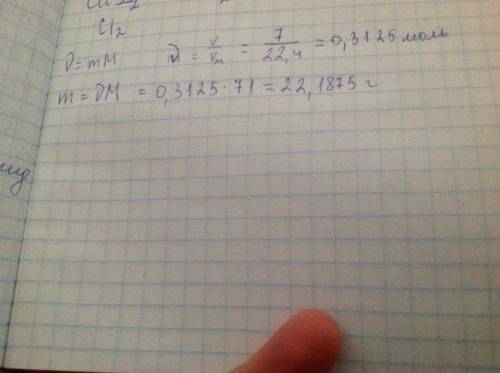 Cl₂
ν = mM   ν = V/Vm = 7/22,4 = 0,3125 моль
m = νM = 0,3125 · 71 = 22,1875 г